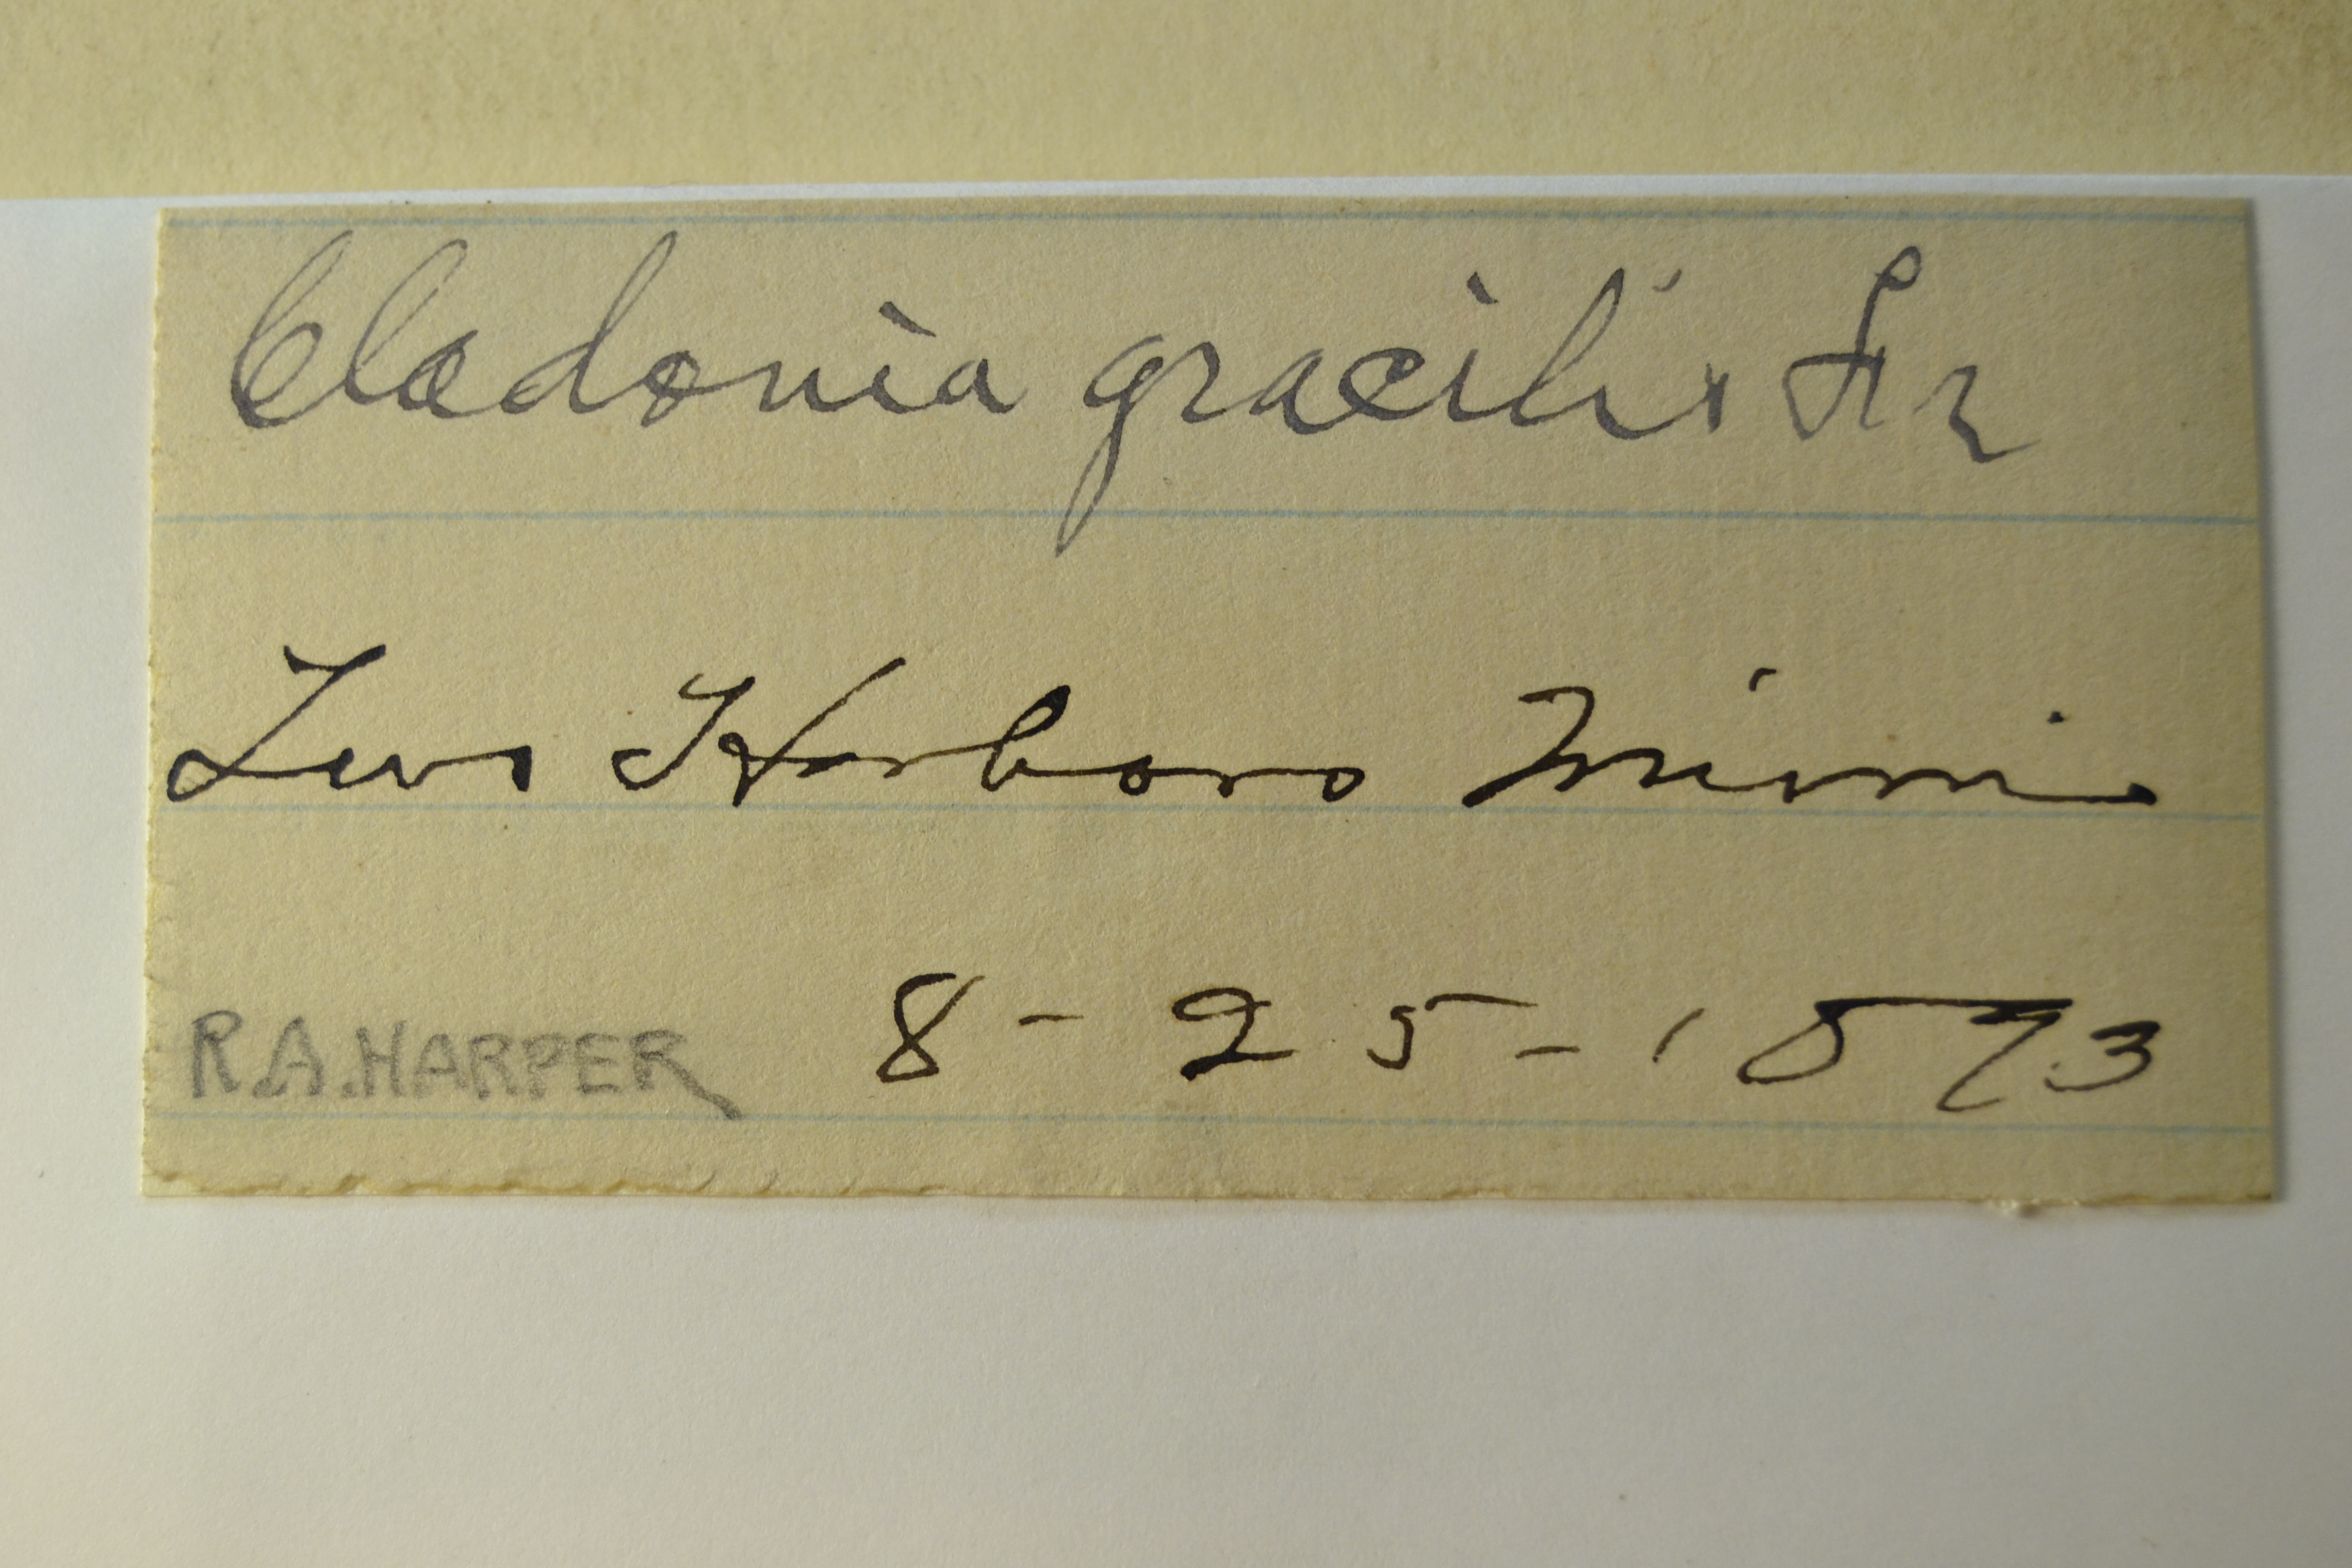 Cladonia gracilis Fr
Two Harbors Minn
R.A. HARPER 8-25-1893